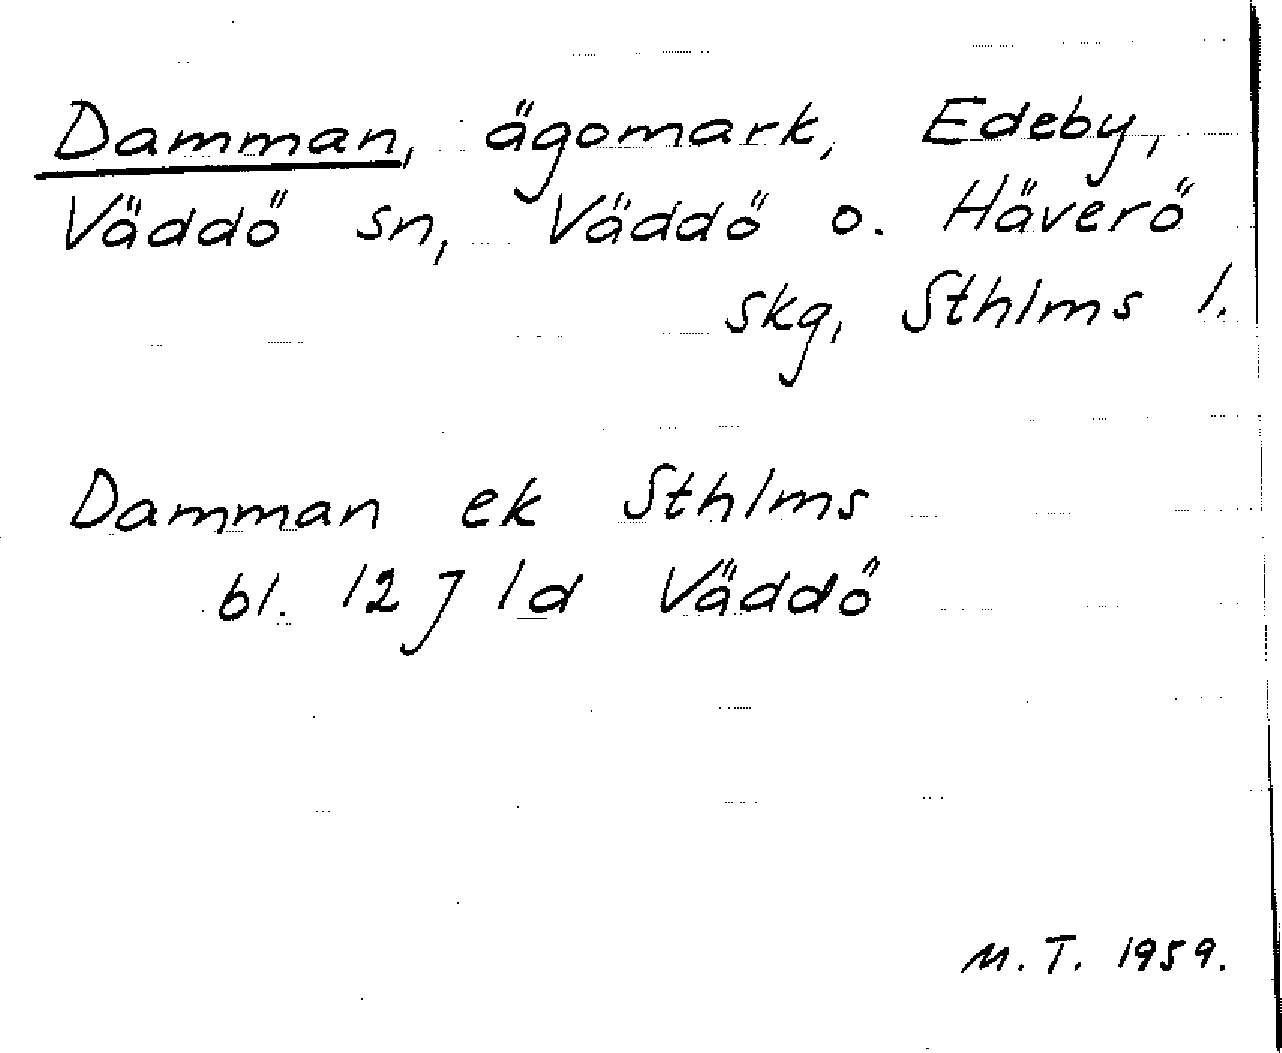 Damman, ägomark, Edeby,
Väddö sn, Väddö o. Häverö
skg, Sthlms l.
Damman ek Sthlms
bl. 12 J 1d Väddö
M.T. 1959.